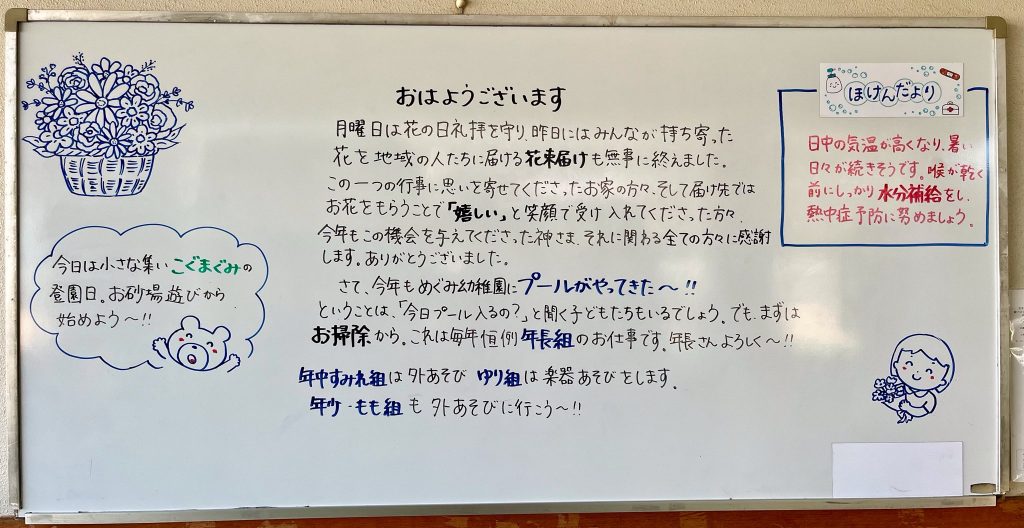 おはようございます
月曜日は花の日礼拝を守り、昨日にはみんなが持ち寄った
花を地域の人たちに届ける花束届けも無事に終えました。
この一つの行事に思いを寄せてくださったお家の方々、そして届け先では
お花をもらうことで「嬉しい」と笑顔で受け入れてくださった方々、
今年もこの機会を与えてくださった神さま、それに関わる全ての方々に感謝
します。ありがとうございました。
さて、今年もめぐみ幼稚園にプールがやってきた〜!!
ということは、「今日プール入るの?」と聞く子どもたちもいるでしょう。でも、まずは
お掃除から。これは毎年恒例年長組のお仕事です。年長さんよろしく〜!!
年中すみれ組は外あそび ゆり組は楽器あそびをします。
年少・もも組も外あそびに行こう〜!!
今日は小さな集いこぐまぐみの
登園日。お砂場遊びから
始めよう〜!!
ほけんだより
日中の気温が高くなり、暑い
日々が続きそうです。喉が乾く
前にしっかり水分補給をし、
熱中症予防に努めましょう。